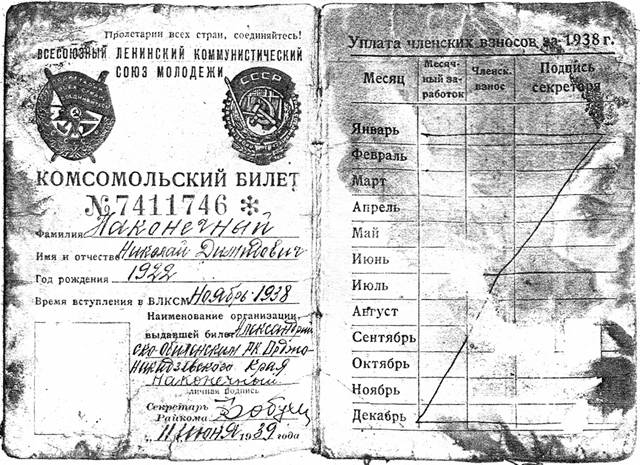 Пролетарии всех стран, соединяйтесь!
ВСЕСОЮЗНЫЙ ЛЕНИНСКИЙ КОММУНИСТИЧЕСКИЙ
СОЮЗ МОЛОДЕЖИ
СССР
КОМСОМОЛЬСКИЙ БИЛЕТ
№7411746 *
Фамилия Наконечный
Имя и отчество Николай Демидович
Год рождения 1922
Время вступления в ВЛКСМ Ноябрь-1938
Наименование организации,
выдавшей билет
РК
Края
Наконечный
личная подпись
Секретарь
Райкома
11 июня 1939 года
Уплата членских взносов за 1938 г.
Месяц Месячный заработок Членск. взнос Подпись секретаря
Январь
Февраль
Март
Апрель
Май
Июнь
Июль
Август
Сентябрь
Октябрь
Ноябрь
Декабрь